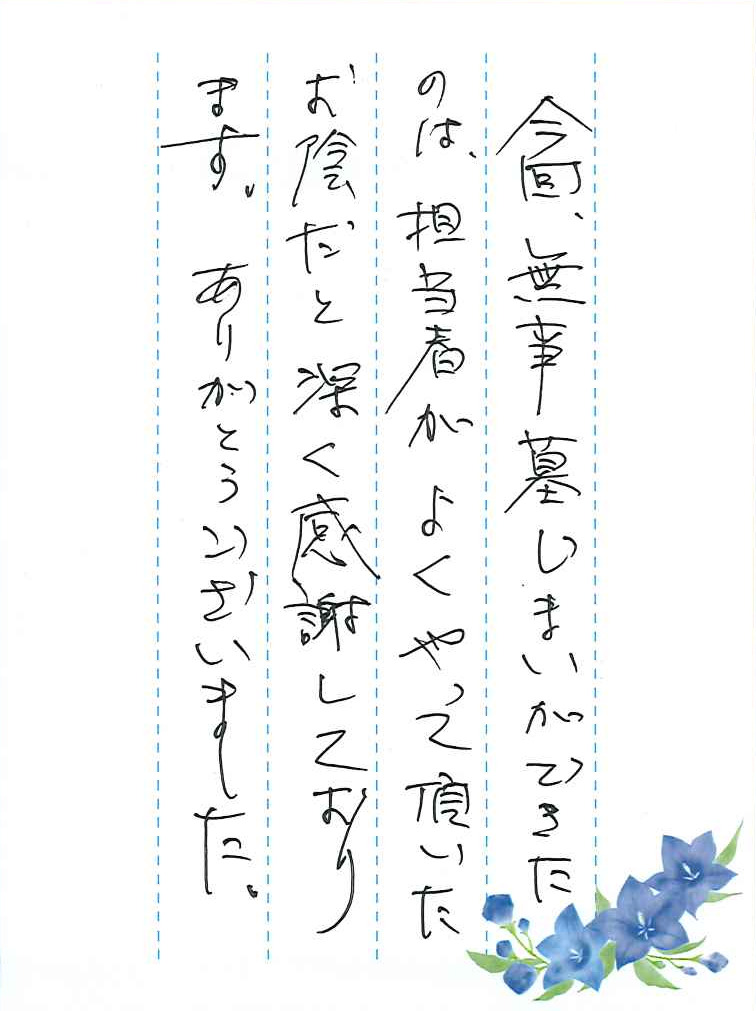 今回、無事墓じまいができた
のは、担当者がよくやって頂いた
お陰だと深く感謝しており
ます。ありがとうございました。